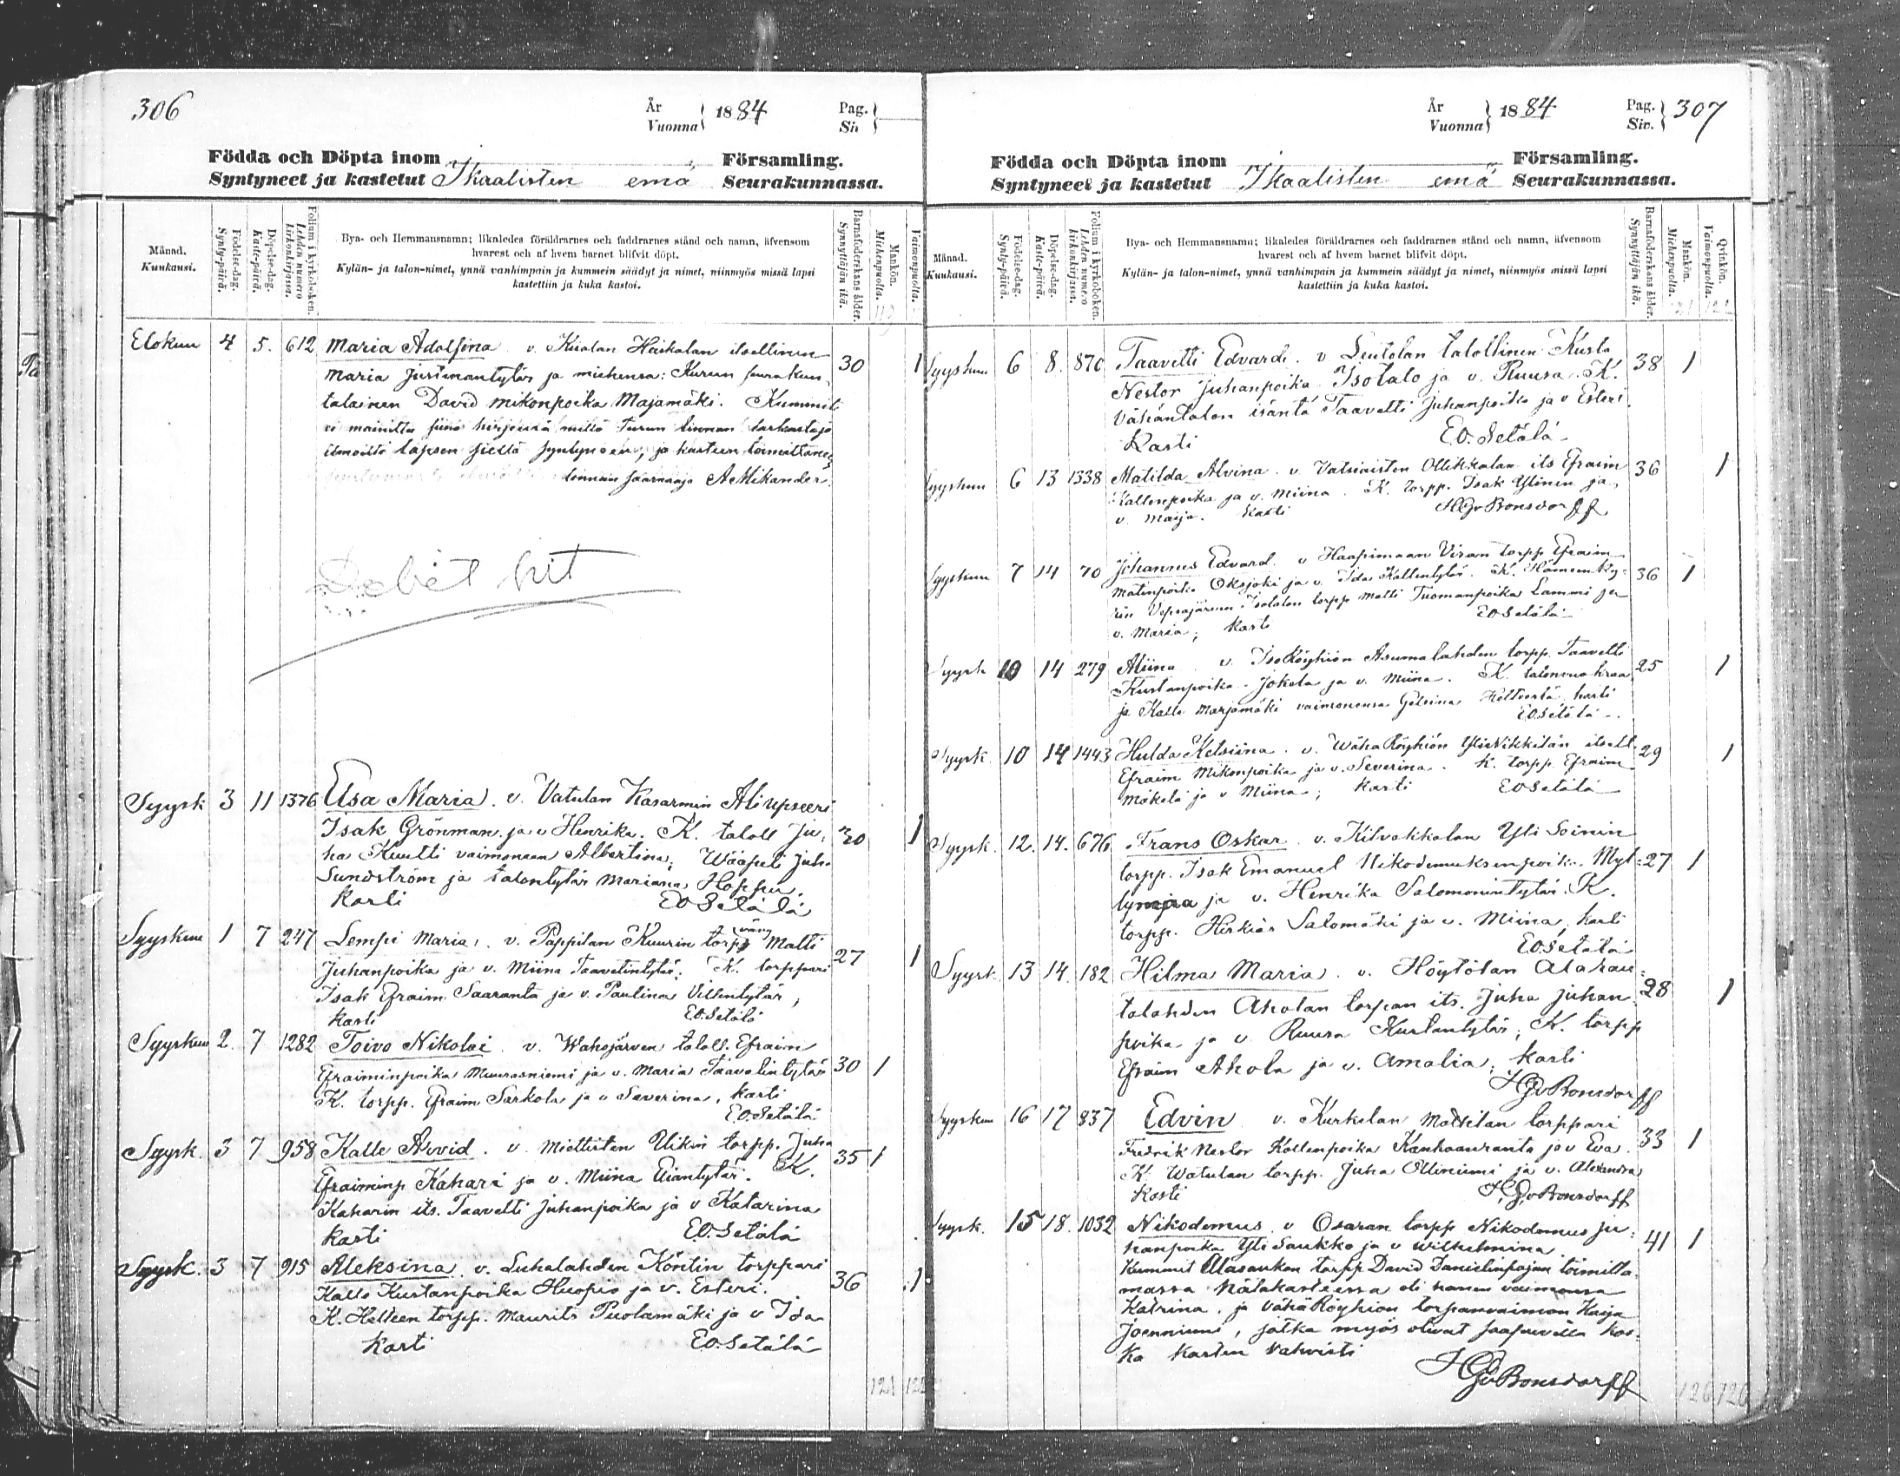 306
År Vuonna 1884 Pag. Siv.
Födda och Döpta inom Församling.
Syntyneet ja kastetut Ikaalisten emä Seurakunnassa.
Månad. Kuukausi.
Födelse-dag. Synty-päivä.
Döpelse-dag. Kaste-päivä.
Folium i kyrkoboken. Lehden numero kirkonkirjassa.
Bya- och Hemmansnamn; likaledes föräldrarnes och faddrarnes stånd och namn, äfvensom
hvarest och af hvem barnet blifvit döpt.
Kylän- ja talon-nimet, ynnä vanhimpain ja kummein säädyt ja nimet, niinmyös missä lapsi
kastettiin ja kuka kastoi.
Barnaföderskans ålder. Synnyttäjän ikä.
Mankön. Miehenpuolta.
Vaimonpuolta.
Elokuu 4 5. 612 Maria Adolfina v. Haikalan itsellinen 30 1
Maria ja miehensä: Kurun seurakun-
talainen David Mikonpoika Majamäki. Kummit
ei mainittu Turun linnan
ilmoitti lapsen siellä syntyneen, ja kasteen toimittaneen
linnan saarnaaja A Mikander
Syysk 3 11 1376 Elsa Maria. v. Vatulan Kasarmin Aliupseeri
Isak Grönman ja v Henrika. K. taloll Ju- 30 1
ha Kuutti vaimonsa Albertina; Wääpeli Juh.
Sundström ja talontytär Mariana Hoppu.
Kasti EO Setälä
Syyskuu 1 7 247 Lempi Maria. v. Pappilan Kuurin torp vävy Matti 27 1
Juhanpoika ja v. Miina Taavetintytär. K. torppari
Isak Efraim Saaranta ja v. Paulina Villentytär,
Kasti EO Setälä
Syyskuu 2. 7 1282 Toivo Nikolai v. Wahojärven taloll. Efraim
Efraiminpoika Muurasniemi ja v. Maria Taavetintytär 30 1
K. torpp. Efraim Sarkola ja v Severina, kasti
EO Setälä
Syysk. 3 7 958 Kalle Arvid. v. Miettisten Uikin torpp. Juha 35 1
Efraiminp. Kahari ja v. Miina Eliantytär. K.
Kaharin its. Taavetti Juhanpoika ja v Katarina
Kasti EO. Setälä
Syysk. 3 7 915 Aleksina v. Luhalahden Köntin torppari
Kalle Kustanpoika Huopio ja v. Esteri. 36 1
K. Helteen torpp. Maurits Puolamäki ja v Ida
Kasti EO. Setälä
121 122
År Vuonna 1884 Pag. Siv. 307
Födda och Döpta inom Församling.
Syntyneet ja kastetut Ikaalisten emä Seurakunnassa.
Månad. Kuukausi.
Födelse-dag. Synty-päivä.
Döpelse-dag. Kaste-päivä.
Folium i kyrkoboken. Lehden numero kirkonkirjassa.
Bya- och Hemmansnamn; likaledes föräldrarnes och faddrarnes stånd och namn, äfvensom
hvarest och af hvem barnet blifvit döpt.
Kylän- ja talon-nimet, ynnä vanhimpain ja kummein säädyt ja nimet, niinmyös missä lapsi
kastettiin ja kuka kastoi.
Barnaföderskans ålder. Synnyttäjän ikä.
Mankön. Miehenpuolta.
Qvinkön. Vaimonpuolta.
121 122
Syyskuu 6 8. 870 Taavetti Edvard. v Leutolan talollinen Kusta 38 1
Nestor Juhanpoika Isotalo ja v. Ruusa. K.
Vähäntalon isäntä Taavetti Juhanpoika ja v Esteri.
Kasti EO. Setälä
Syyskuu 6 13 1338 Matilda Alvina. v. Vatsiaisten Ollikkalan its Efraim 36 1
Kallenpoika ja v. Miina. K. torpp. Isak Ylinen ja
v. Maija. Kasti HGvBonsdorff
Syyskuu 7 14 70 Johannes Edvard. v Haapimaan Viran torpp Efraim 36 1
Matinpoika Oksjoki ja v. Ida Kallentytär. K. Hämeenky-
rön Vepsajärven Isotalon torpp Matti Tuomanpoika Lammi ja
v. Maria; kasti EO Setälä
Syysk 10 14 279 Aliina v. Iso Röyhiön Asumalahden torpp. Taavetti 25 1
Kustanpoika Jokela ja v. Miina. K.
ja Kalle Marjamäki vaimonensa kasti
EO Setälä
Syysk. 10 14 1443 Hulda Ketsiina. v. Wähä Röyhiön YliNikkilän itsell. 29 1
Efraim Mikonpoika ja v. Severina. K. torpp Efraim
Mäkelä ja v Miina; kasti EO Setälä
Syysk. 12. 14. 676 Frans Oskar. v. Kilvakkalan Yli Soinin
torpp. Isak Emanuel Nikodemuksenpoika Myl- 27 1
lympia ja v. Henrika Salomonintytär. K.
torpp. Herkiär Salomäki ja v. Miina, kasti
EO Setälä
Syysk. 13 14. 182 Hilma Maria. v. Höytölän
Aholan torpan its. Juha Juhan- 28 1
poika ja v Ruusa Kustantytär, K. torpp
Efraim Ahola ja v. Amalia; kasti
HGvBonsdorff
Syyskuu 16 17 837 Edvin v. Kurkelan Matkilan torppari
Fredrik Nestor Kallenpoika Kanhaanranta ja v Eva. 33 1
K. Watulan torpp. Juha Olliniemi ja v. Alexandra
Kasti HGvBonsdorff
Syysk. 15 18. 1032 Nikodemus v Osaran torpp Nikodemus Ju-
hanpoika Yli Saukko ja v Wilhelmina 41 1
Kummit Alasaukon torpp David Danielinpojan toimitta-
massa hätäkasteessa oli hänen vaimonsa
Katrina, ja Vähä Röyhiön torpanvaimon Kaija
Joenniemi, jotka myös olivat saapuvilla kos-
ka kasten vahvisti
HGvBonsdorff
126 126